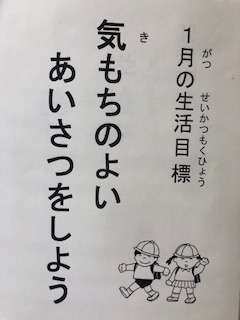 １月の生活目標
がつ
せいかつもくひょう
気もちのよい
き
あいさつをしよう